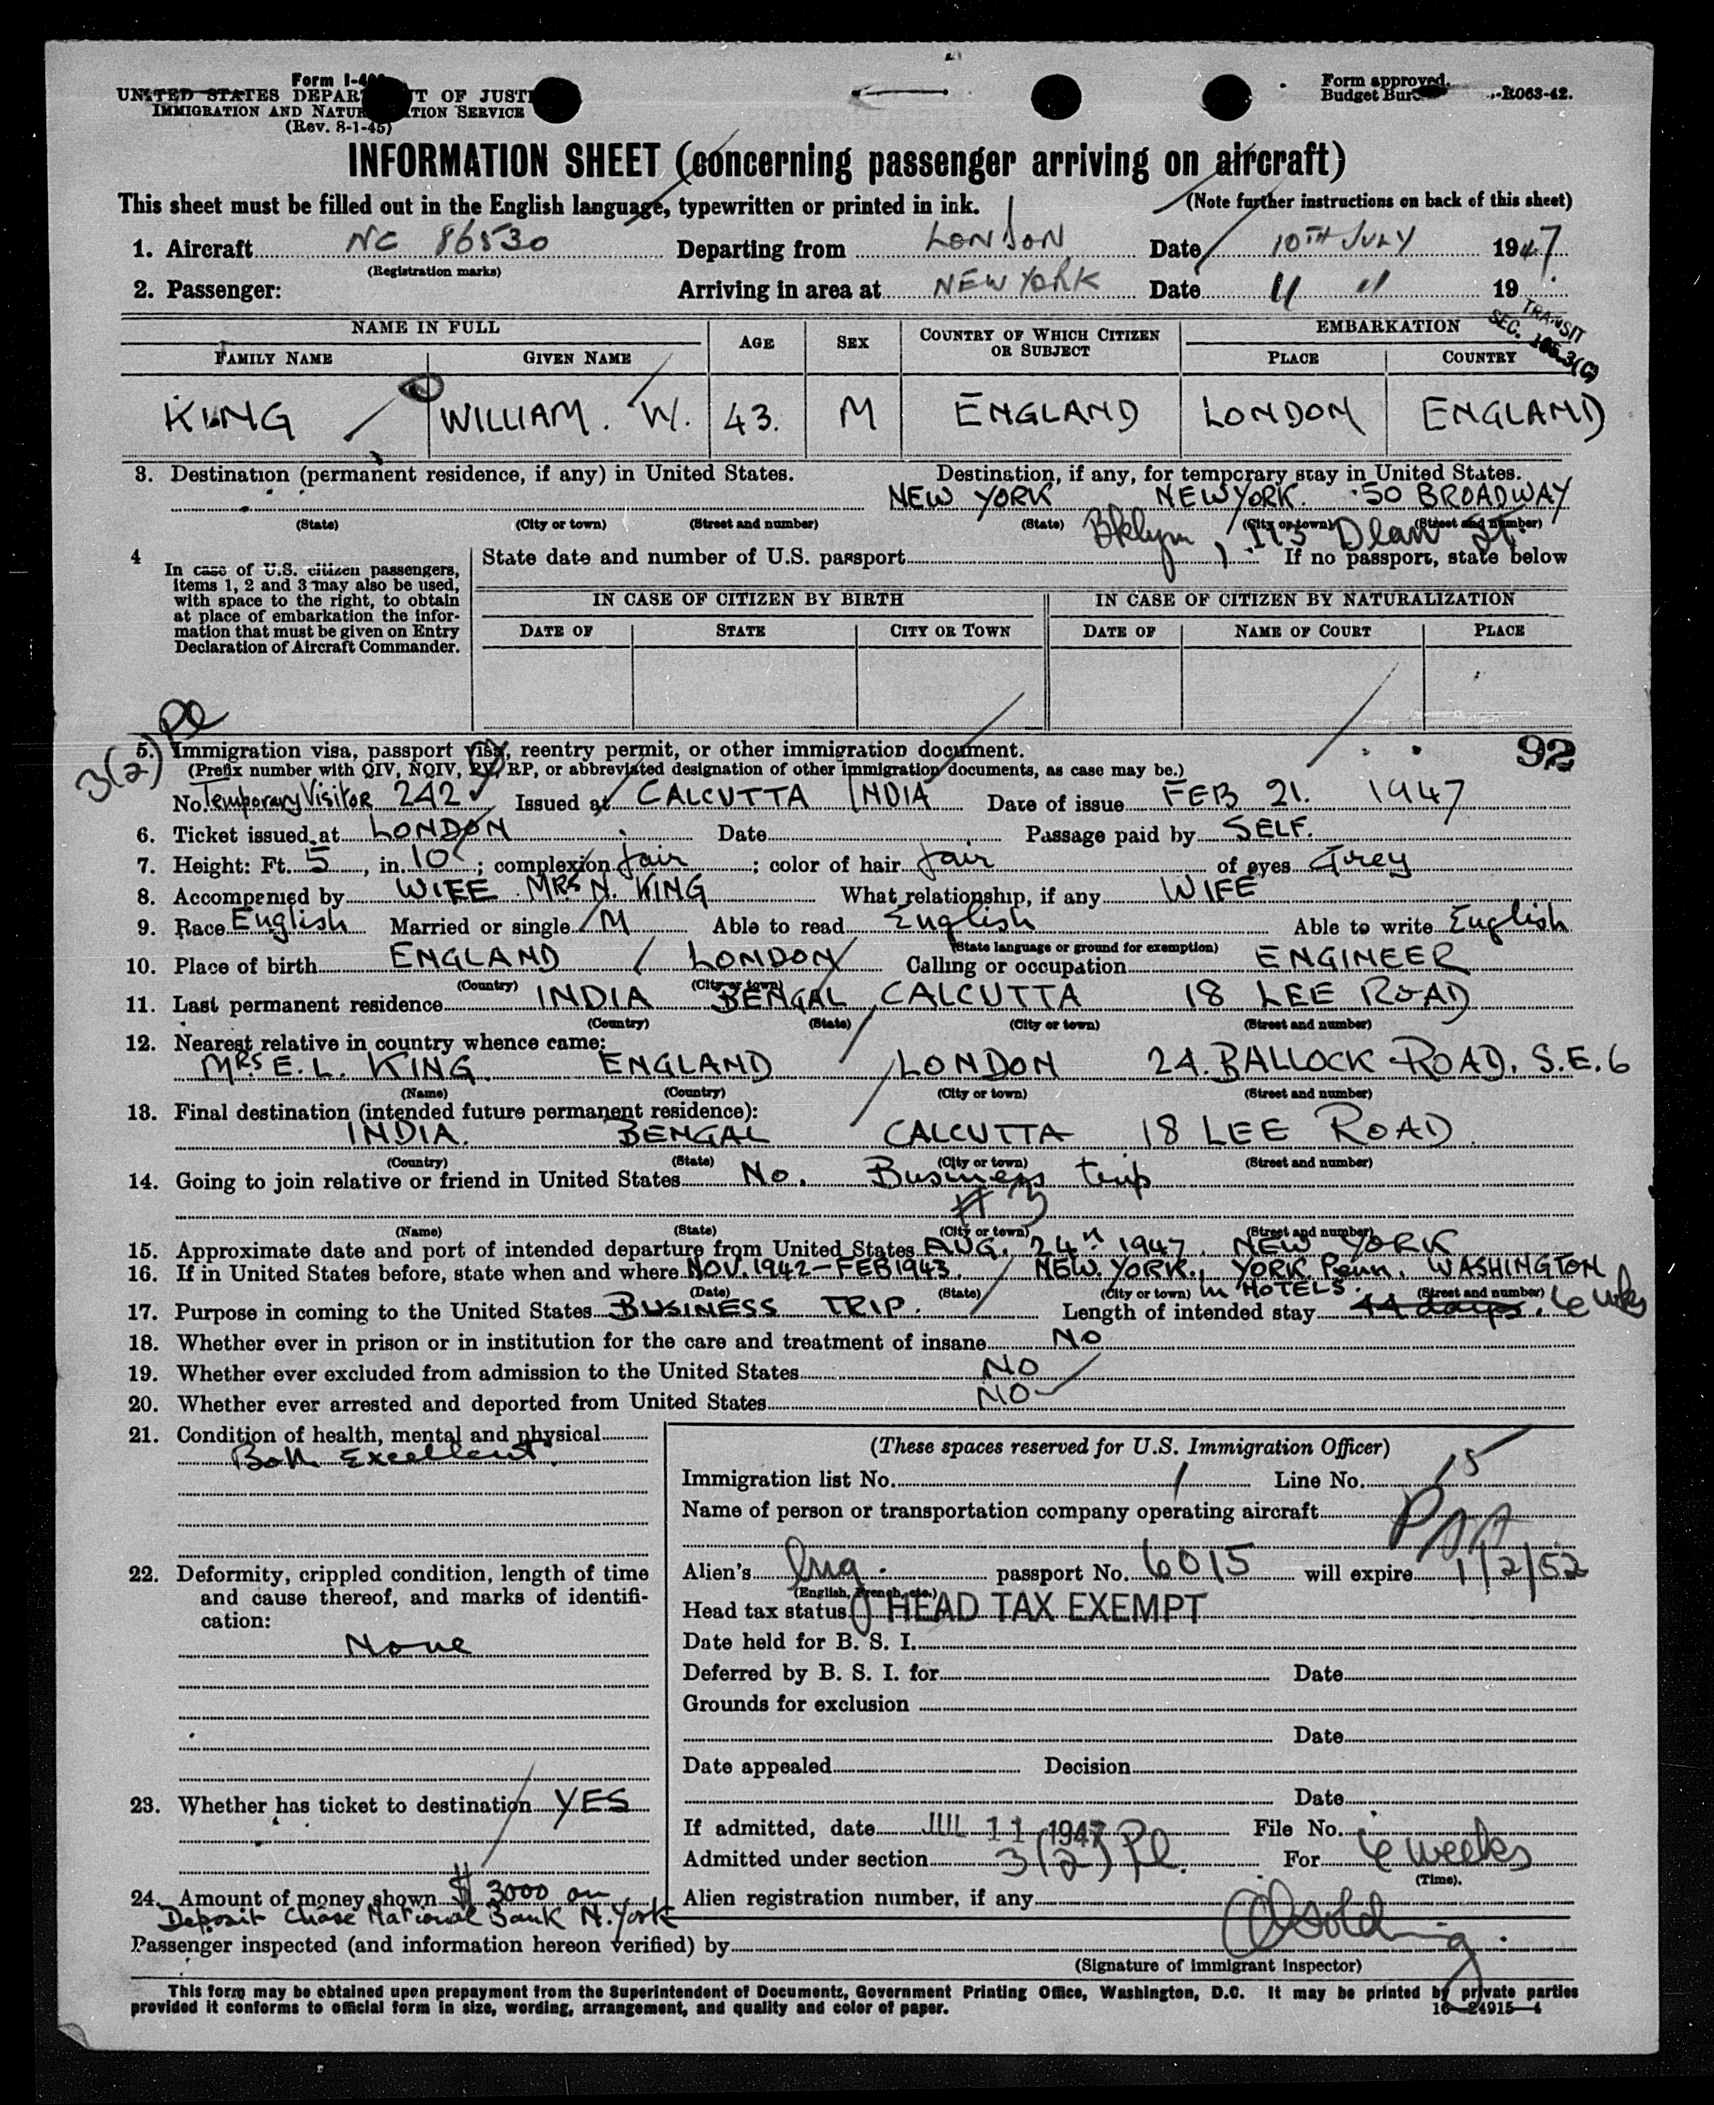 Form I-4
UNITED STATES DEPAR T OF JUSTI
IMMIGRATION AND NATUR TION SERVICE
(Rev. 8-1-45)
Form approved.
Budget Bur -R063-42.
INFORMATION SHEET (concerning passenger arriving on aircraft)
This sheet must be filled out in the English language, typewritten or printed in ink. (Note further instructions on back of this sheet)
1. Aircraft NC 86530 Departing from LONDON Date 10TH JULY 1947
(Registration marks)
2. Passenger: Arriving in area at NEW YORK Date 11 " 19
TRANSIT
SEC. 3(C)
NAME IN FULL AGE SEX COUNTRY OF WHICH CITIZEN OR SUBJECT EMBARKATION
FAMILY NAME GIVEN NAME PLACE COUNTRY
KING WILLIAM. W. 43. M ENGLAND LONDON ENGLAND
3. Destination (permanent residence, if any) in United States. Destination, if any, for temporary stay in United States.
NEW YORK NEW YORK. 50 BROADWAY
(State) (City or town) (Street and number) (State) (City or town) (Street and number)
Bklyn, 173 Dean St.
4 In case of U.S. citizen passengers, items 1, 2 and 3 may also be used, with space to the right, to obtain at place of embarkation the information that must be given on Entry Declaration of Aircraft Commander.
State date and number of U.S. passport If no passport, state below
IN CASE OF CITIZEN BY BIRTH IN CASE OF CITIZEN BY NATURALIZATION
DATE OF STATE CITY OR TOWN DATE OF NAME OF COURT PLACE
3(2) Pl
92
5. Immigration visa, passport visa, reentry permit, or other immigration document.
(Prefix number with QIV, NQIV, PV, RP, or abbreviated designation of other immigration documents, as case may be.)
No. Temporary Visitor 242 Issued at CALCUTTA INDIA Date of issue FEB 21. 1947
6. Ticket issued at LONDON Date Passage paid by SELF.
7. Height: Ft. 5, in. 10; complexion fair; color of hair fair of eyes Grey
8. Accompanied by WIFE MRS N. KING What relationship, if any WIFE
9. Race English Married or single M Able to read English Able to write English
(State language or ground for exemption)
10. Place of birth ENGLAND LONDON Calling or occupation ENGINEER
(Country) (City or town)
11. Last permanent residence INDIA BENGAL CALCUTTA 18 LEE ROAD
(Country) (State) (City or town) (Street and number)
12. Nearest relative in country whence came:
MRS E. L. KING ENGLAND LONDON 24. BALLOCK ROAD, S.E.6
(Name) (Country) (City or town) (Street and number)
13. Final destination (intended future permanent residence):
INDIA. BENGAL CALCUTTA 18 LEE ROAD
(Country) (State) (City or town) (Street and number)
14. Going to join relative or friend in United States No. Business trip
#3
(Name) (State) (City or town) (Street and number)
15. Approximate date and port of intended departure from United States AUG. 24th 1947. NEW YORK
16. If in United States before, state when and where NOV. 1942-FEB 1943. NEW YORK., YORK. Penn. WASHINGTON
(Date) (State) (City or town) in HOTELS. (Street and number)
17. Purpose in coming to the United States BUSINESS TRIP. Length of intended stay 44 days. 6 wks
18. Whether ever in prison or in institution for the care and treatment of insane NO
19. Whether ever excluded from admission to the United States NO
20. Whether ever arrested and deported from United States NO
21. Condition of health, mental and physical
Both Excellent.
22. Deformity, crippled condition, length of time and cause thereof, and marks of identification:
None
23. Whether has ticket to destination YES
24. Amount of money shown $ 3000 on
Deposit Chase National Bank N. York
(These spaces reserved for U.S. Immigration Officer)
Immigration list No. 1 Line No. 15
Name of person or transportation company operating aircraft PAA
Alien's Eng. passport No. 6015 will expire 1/2/52
(English, French, etc.)
Head tax status HEAD TAX EXEMPT
Date held for B. S. I.
Deferred by B. S. I. for Date
Grounds for exclusion
Date
Date appealed Decision
Date
If admitted, date JUL 11 1947 File No.
Admitted under section 3(2) Pl. For 6 weeks
(Time).
Alien registration number, if any
Passenger inspected (and information hereon verified) by
(Signature of immigrant inspector)
This form may be obtained upon prepayment from the Superintendent of Documents, Government Printing Office, Washington, D.C. It may be printed by private parties
provided it conforms to official form in size, wording, arrangement, and quality and color of paper. 16-24915-4